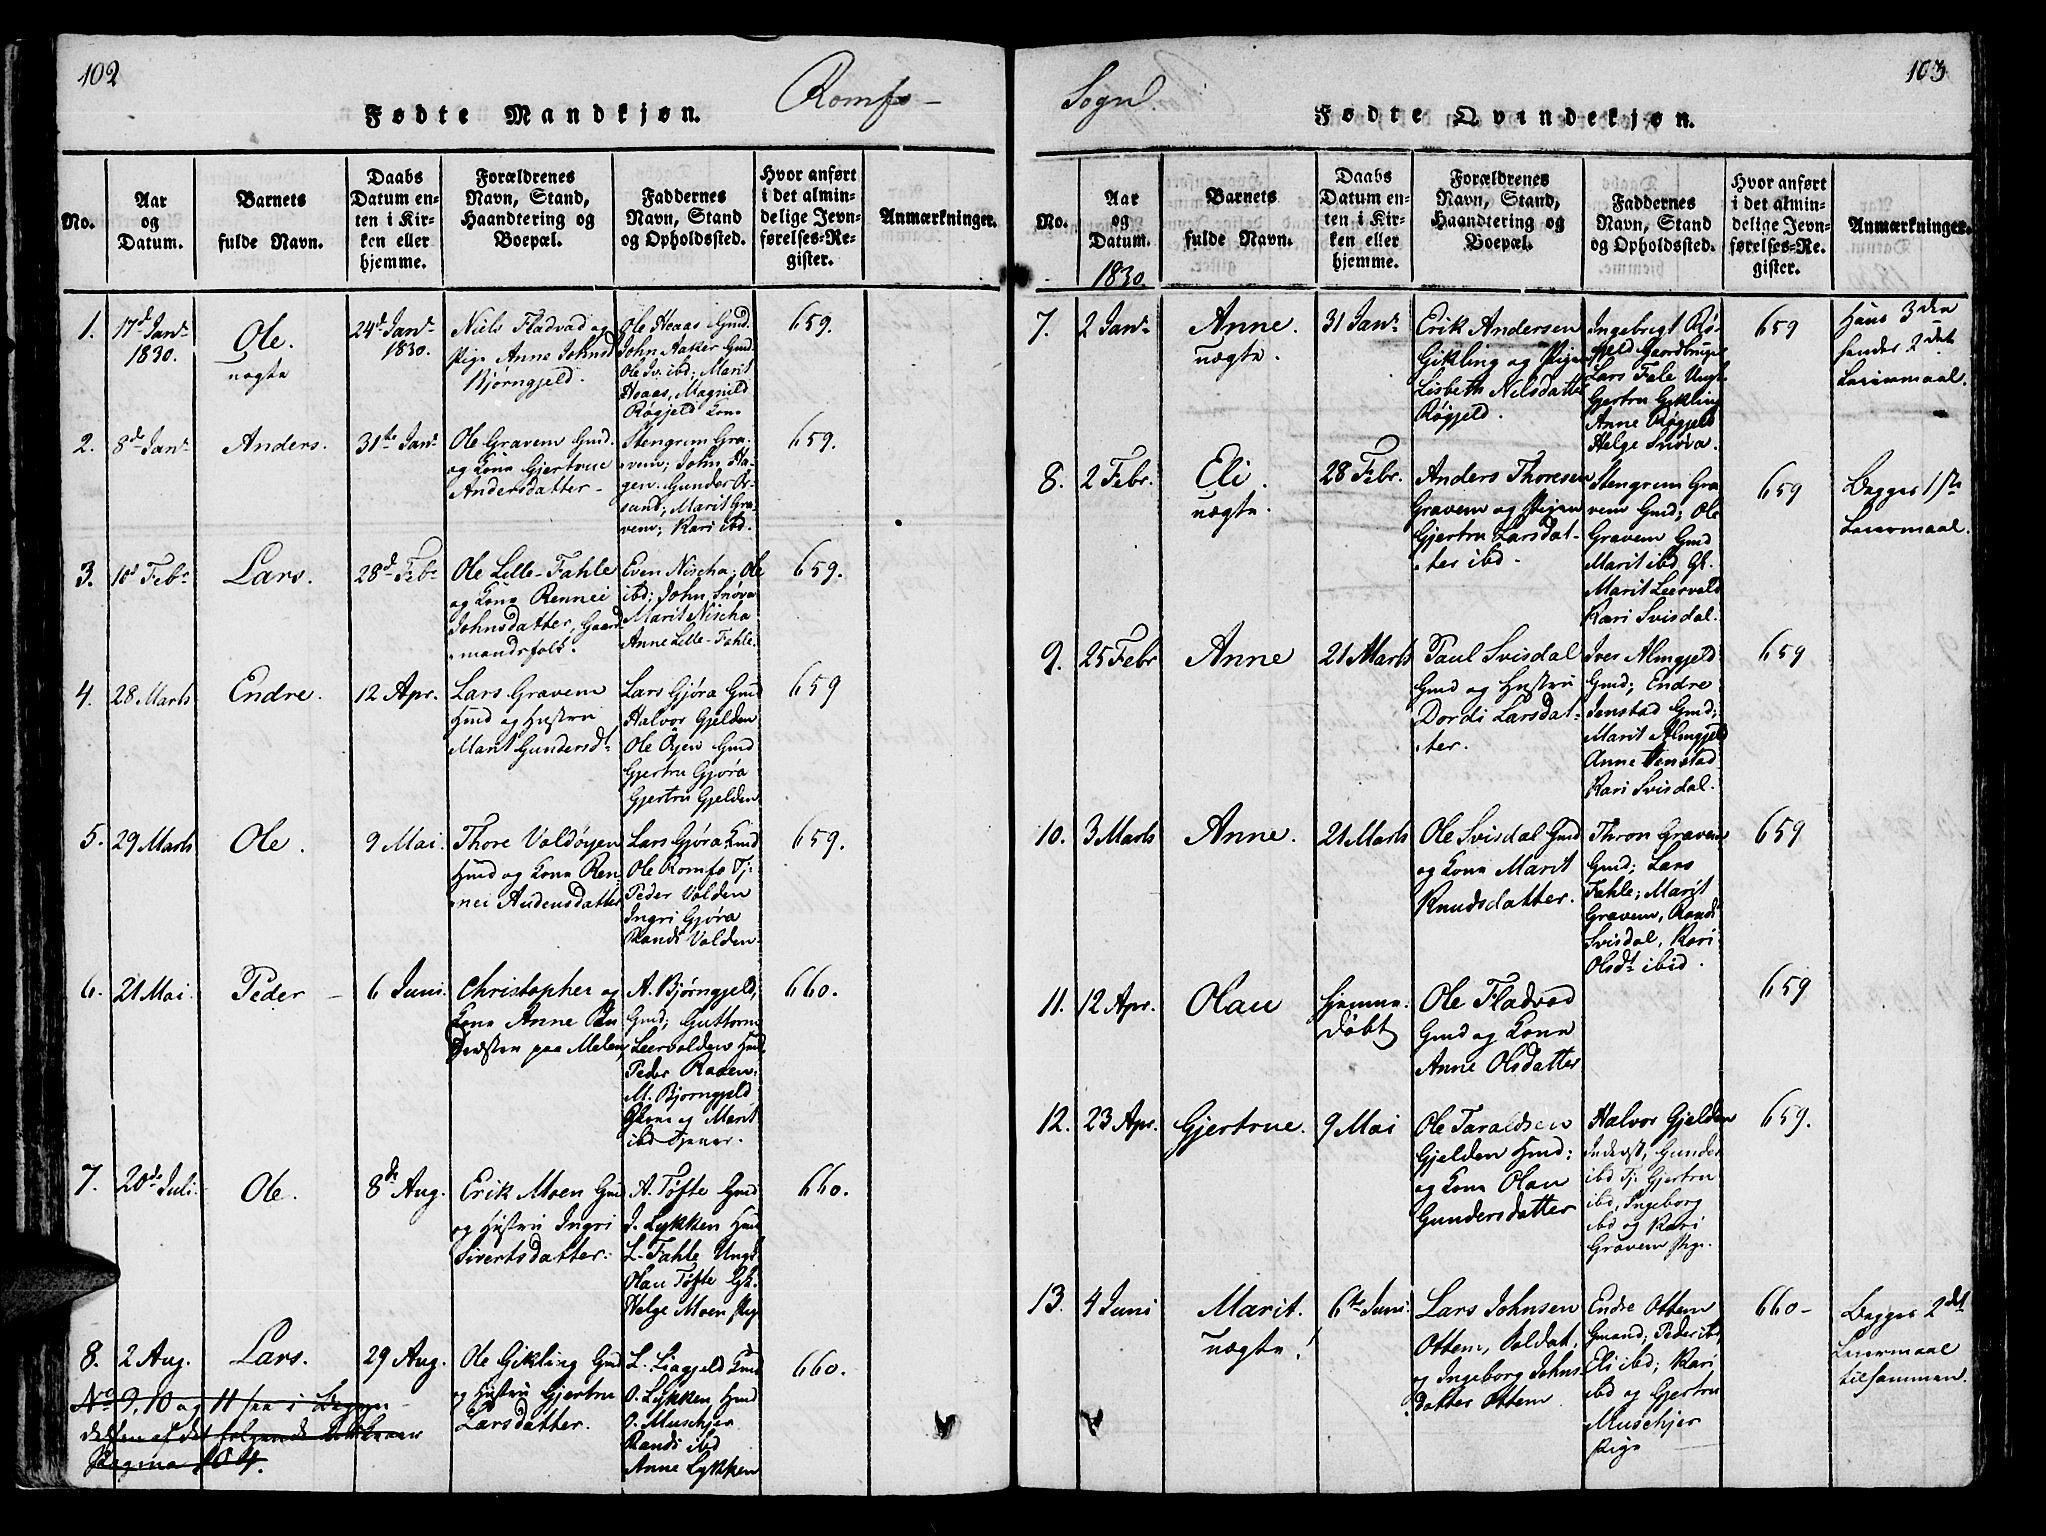 102
Romfo-
Fødte Mandkjøn.
No.
Aar
og
Datum.
Barnets
fulde Navn.
Daabs
Datum en-
ten i Kir-
ken eller
hjemme.
Forældrenes
Navn, Stand,
Haandtering og
Boepæl.
Faddernes
Navn, Stand
og Opholdssted.
Hvor anført
i det almin-
delige Jevn-
førelses-Re-
gister.
Anmærkninger.
1.
17d Janr
1830.
Ole.
uægte
24d Janr
1830.
Niels Fladvad og
Pige Anne Johnsd
Bjørngjeld.
Ole Hoaas Gmd.
John Haker Gmd.
Ole ibd; Marit
Hoaas, Magnild
Røgjeld Kone
659.
2.
8de Janr
Anders.
31te Janr
Ole Gravem Gmd.
og Kone Gjertrue
Andersdatter-
Stengrim Gra-
vem; John Ha-
gen. Gunder Or-
sund; Marit Gra-
vem; Kari ibd.
659.
3.
10d Febr
Lars.
28d Febr
Ole Lille-Fahle
og Kone Rennei
Johnsdatter, Gaard-
mandsfolk.
Even Nischa; Ole
ibd; John Snøva
Marit Nischa
Anne Lille-Fahle.
659.
4.
28 Marts
Endre.
12 Apr.
Lars Gravem
Hmd og Hustru
Marit Gundersdt
Lars Gjøra Gmd
Halvor Gjelden
Ole Øyen Gmd
Gjertru Gjøra
Gjertru Gjelden
659
5.
29 Marts
Ole.
9 Mai.
Thore Voldøyen
Hmd og Kone Ren-
nei Audensdatter
Lars Gjøra Gmd
Ole Romfo Tj:
Peder Volden
Ingri Gjøra
Randi Volden.
659.
6.
21 Mai.
Peder
6 Juni.
Christopher og
Kone Anne
paa Melen
A. Bjørngjeld,
Gmd; Guttorm
Leervolden Hmd
Peder Raaen.
M. Bjørngjeld
og Marit
ibd Tjener.
660.
7.
20de Juli.
Ole.
8de Aug.
Erik Moen Gmd
og Hustru Ingri
Sivertsdatter.
A. Tøfte Gmd
J. Lykken Hmd
L. Fahle Ungk
Olau Tøfte Gk.
Helge Moen Pig
660.
8.
2 Aug.
Lars.
29 Aug.
Ole Gikling Gmd
og Hustru Gjertru
Larsdatter.
L. Liagjeld Gmd
O. Lykken Hmd
O. Muschjer
Randi ibd
Anne Lykken
660.
No 9, 10 og 11 staa i Begyn-
delsen af det følgende
Pagina 104.
103
Sogn.
Fødte Qvindekjøn.
No.
Aar
og
Datum.
1830.
Barnets
fulde Navn.
Daabs
Datum en-
ten i Kir-
ken eller
hjemme.
Forældrenes
Navn, Stand,
Haandtering og
Boepæl.
Faddernes
Navn, Stand
og Opholdssted.
Hvor anført
i det almin-
delige Jevn-
førelses-Re-
gister.
Anmærkninger.
7.
2 Janr
Anne.
uægte.
31 Janr
Erik Andersen
Gikling og Pigen
Lisbeth Nilsdatter
Røgjeld.
Ingebrigt Rø-
gjeld Gaardbruger
Lars Fale Ungk.
Gjertru Gikling
Anne Røgjeld
Helge Snøva.
659
Hans 3die
hendes 2det
Leiermaal.
8.
2 Febr.
Eli.
uægte.
28 Febr.
Anders Thoresen
Gravem og Pigen
Gjertru Larsdat-
ter ibd.
Stengrim Gra
vem Gmd; Ole
Gravem Gmd
Marit ibd Gk.
Marit Leervold
Kari Svisdal.
659
Begges 1ste
Leiermaal.
9.
25 Febr
Anne
21 Marts
Paul Svisdal
Gmd og Hustru
Dordi Larsdat-
ter.
Iver Almgjeld
Gmd; Endre
Jenstad Gmd;
Marit Almgjeld
Anne Jenstad
Kari Svisdal.
659
10.
3 Marts
Anne.
21 Marts
Ole Svisdal Gmd
og Kone Marit
Knudsdatter.
Thron Gravem
Gmd; Lars
Fahle; Marit
Gravem, Randi
Svisdal, Kari
Olsdt ibid.
659
11.
12 Apr.
Olau
hjemme-
døbt
Ole Fladvad
Gmd og Kone
Anne Olsdatter
659
12.
23 Apr.
Gjertrue.
9 Mai
Ole Taraldsen
Gjelden Hmd;
og Kone Olau
Gundersdatter
Halvor Gjelden
Inderst; Gunder
ibd Tj: Gjertru
ibd, Ingeborg
ibd og Kari
Gravem Pige.
659.
13.
4 Juni
Marit.
uægte!
6te Juni.
Lars Johnsen
Ottem, Soldat;
og Ingeborg Johns
datter Ottem
Endre Ottem
Gmand; Peder ibd
Eli ibd; Kari
ibd og Gjertru
Muschjer
Pige
660-
Begges 2det
Leiermaal
tilsammen.